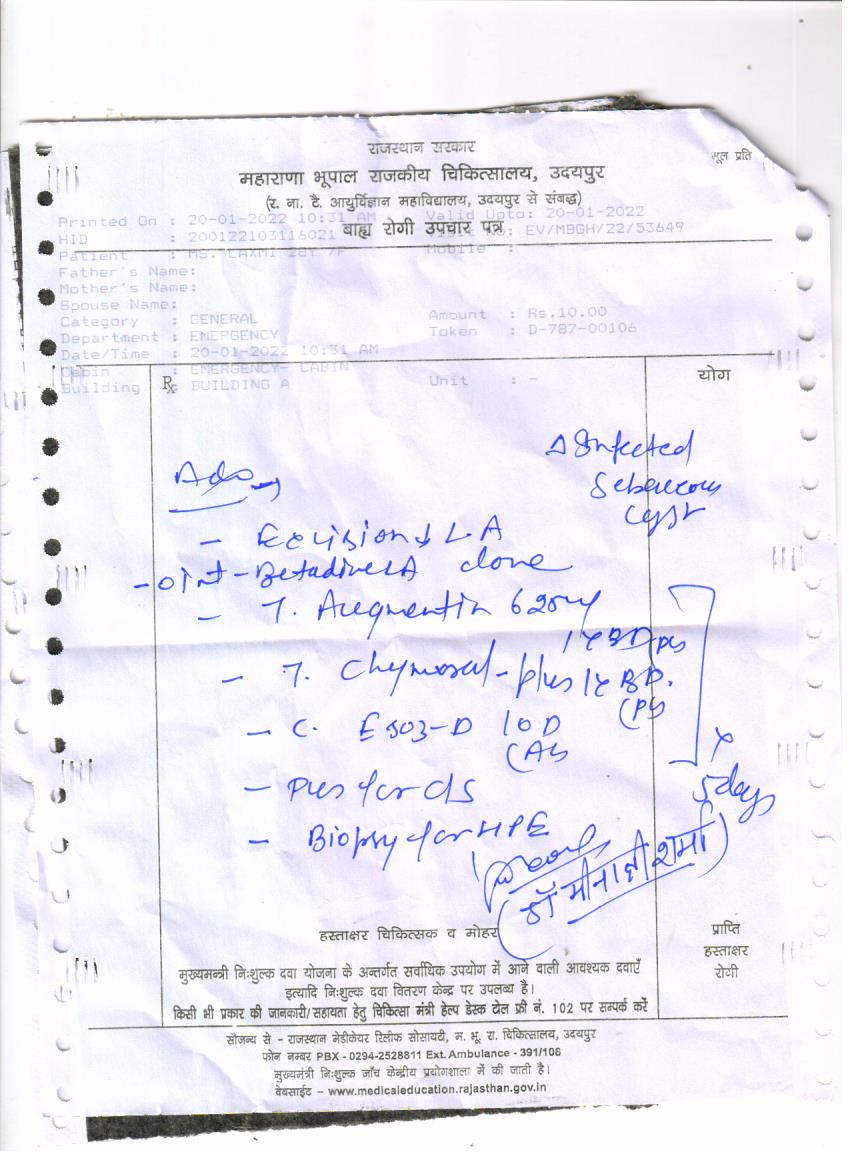 राजस्थान सरकार
मूल प्रति
महाराणा भूपाल राजकीय चिकित्सालय, उदयपुर
(र. ना. टै. आयुर्विज्ञान महाविद्यालय, उदयपुर से संबद्ध)
Printed On : 20-01-2022 10:31 AM Valid Upto: 20-01-2022
बाह्य रोगी उपचार पत्र
HID : 200122103116021 No: EV/MBGH/22/53649
Patient : MS. LAXMI 28Y /F Mobile : -
Father's Name:
Mother's Name:
Spouse Name:
Category : GENERAL Amount : Rs.10.00
Department : EMERGENCY Token : D-787-00106
Date/Time : 20-01-2022 10:31 AM
Cabin : EMERGENCY- CABIN
Building : BUILDING A Unit : -
Rx
योग
Δ Infected
Sebaceous
Cyst
Adv
- Excision ↓ L.A
- oint - Betadine LA done
- T. Augmentin 625mg
1 x BD PS
- T. Chymoral-plus 1 x BD.
(PS
- C. ESOZ-D 1 OD
(AS
x
5 days
- Pus for C/S
- Biopsy for HPE
(डॉ मीनाक्षी शर्मा)
हस्ताक्षर चिकित्सक व मोहर
प्राप्ति
हस्ताक्षर
रोगी
मुख्यमन्त्री निःशुल्क दवा योजना के अन्तर्गत सर्वाधिक उपयोग में आने वाली आवश्यक दवाएँ
इत्यादि निःशुल्क दवा वितरण केन्द्र पर उपलब्ध है।
किसी भी प्रकार की जानकारी/सहायता हेतु चिकित्सा मंत्री हेल्प डेस्क टोल फ्री नं. 102 पर सम्पर्क करें
सौजन्य से - राजस्थान मेडीकेयर रिलीफ सोसायटी, म. भू. रा. चिकित्सालय, उदयपुर
फोन नम्बर PBX - 0294-2528811 Ext. Ambulance - 391/108
मुख्यमंत्री निःशुल्क जाँच केन्द्रीय प्रयोगशाला में की जाती है।
वेबसाईट – www.medicaleducation.rajasthan.gov.in